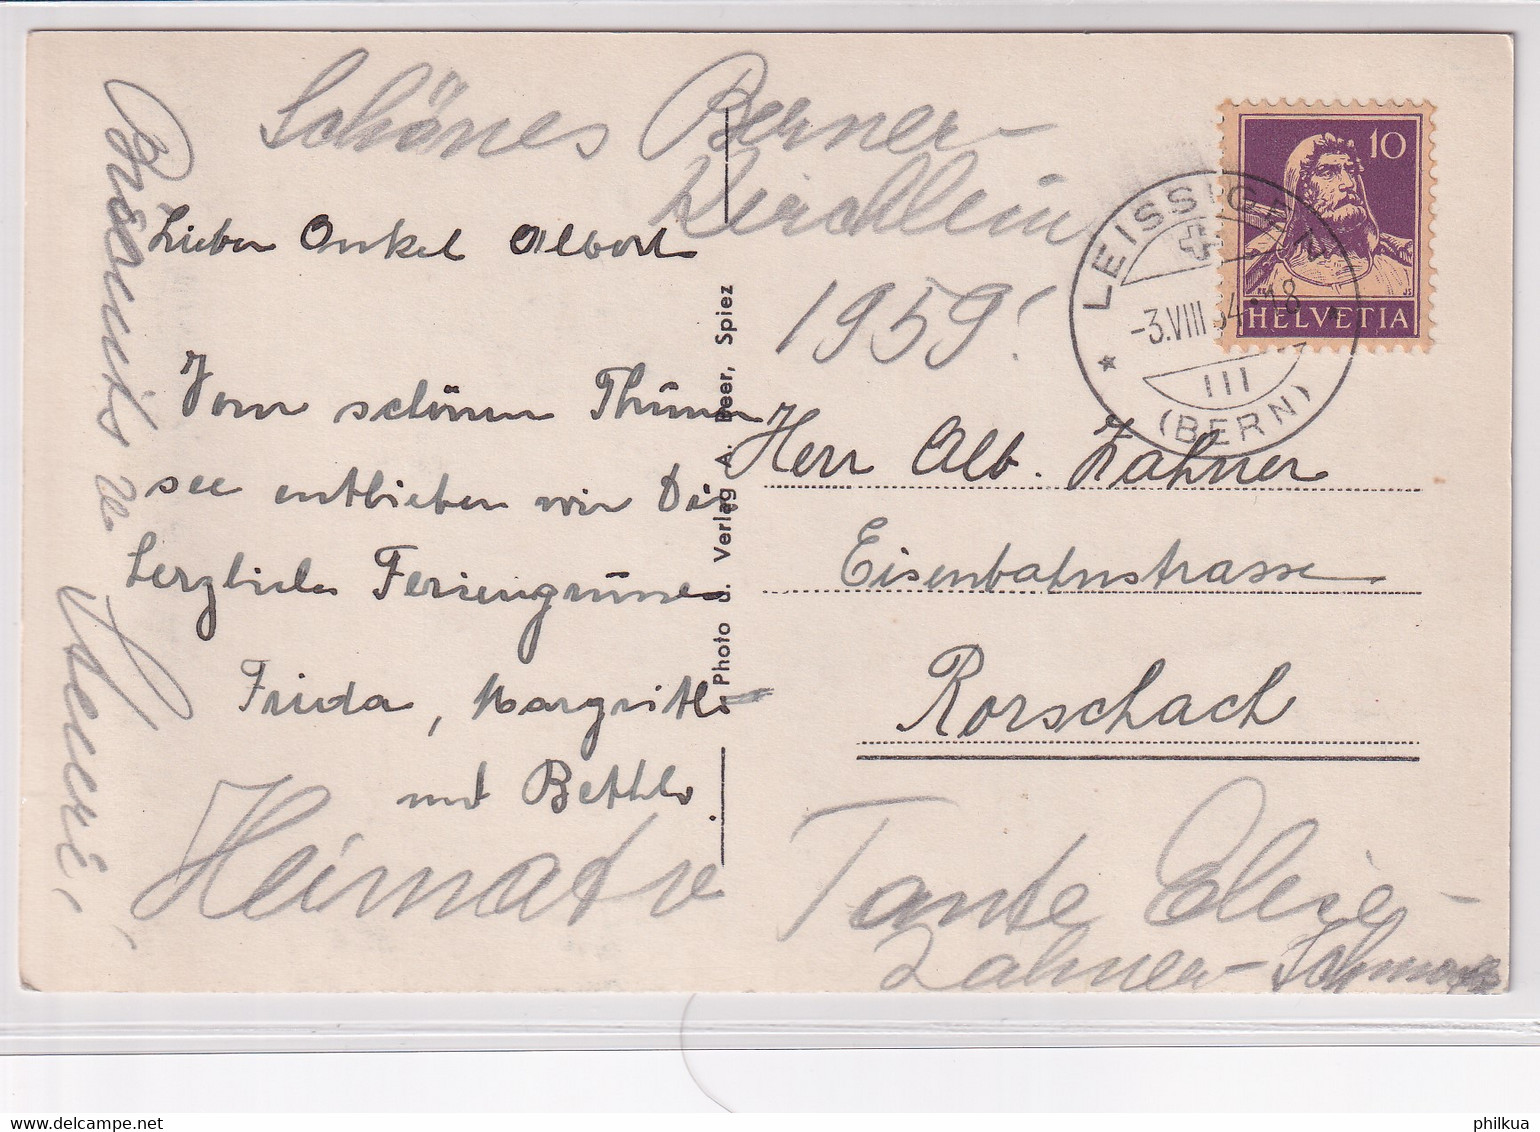 Schönes Berner-
Kirchlein
1959!
Lieber Onkel Albert
Vom schönen Thuner
see entbieten wir Dir
herzliche Feriengrüsse
Frieda, Margritli
und Bethli
Heimat v
Photo u. Verlag A. Beer, Spiez
10
HELVETIA
LEISSIGEN
-3.VIII 34-18
III
(BERN)
Herr Alb. Zahner
Eisenbahnstrasse
Rorschach
Tante Elise,-
Zahner-